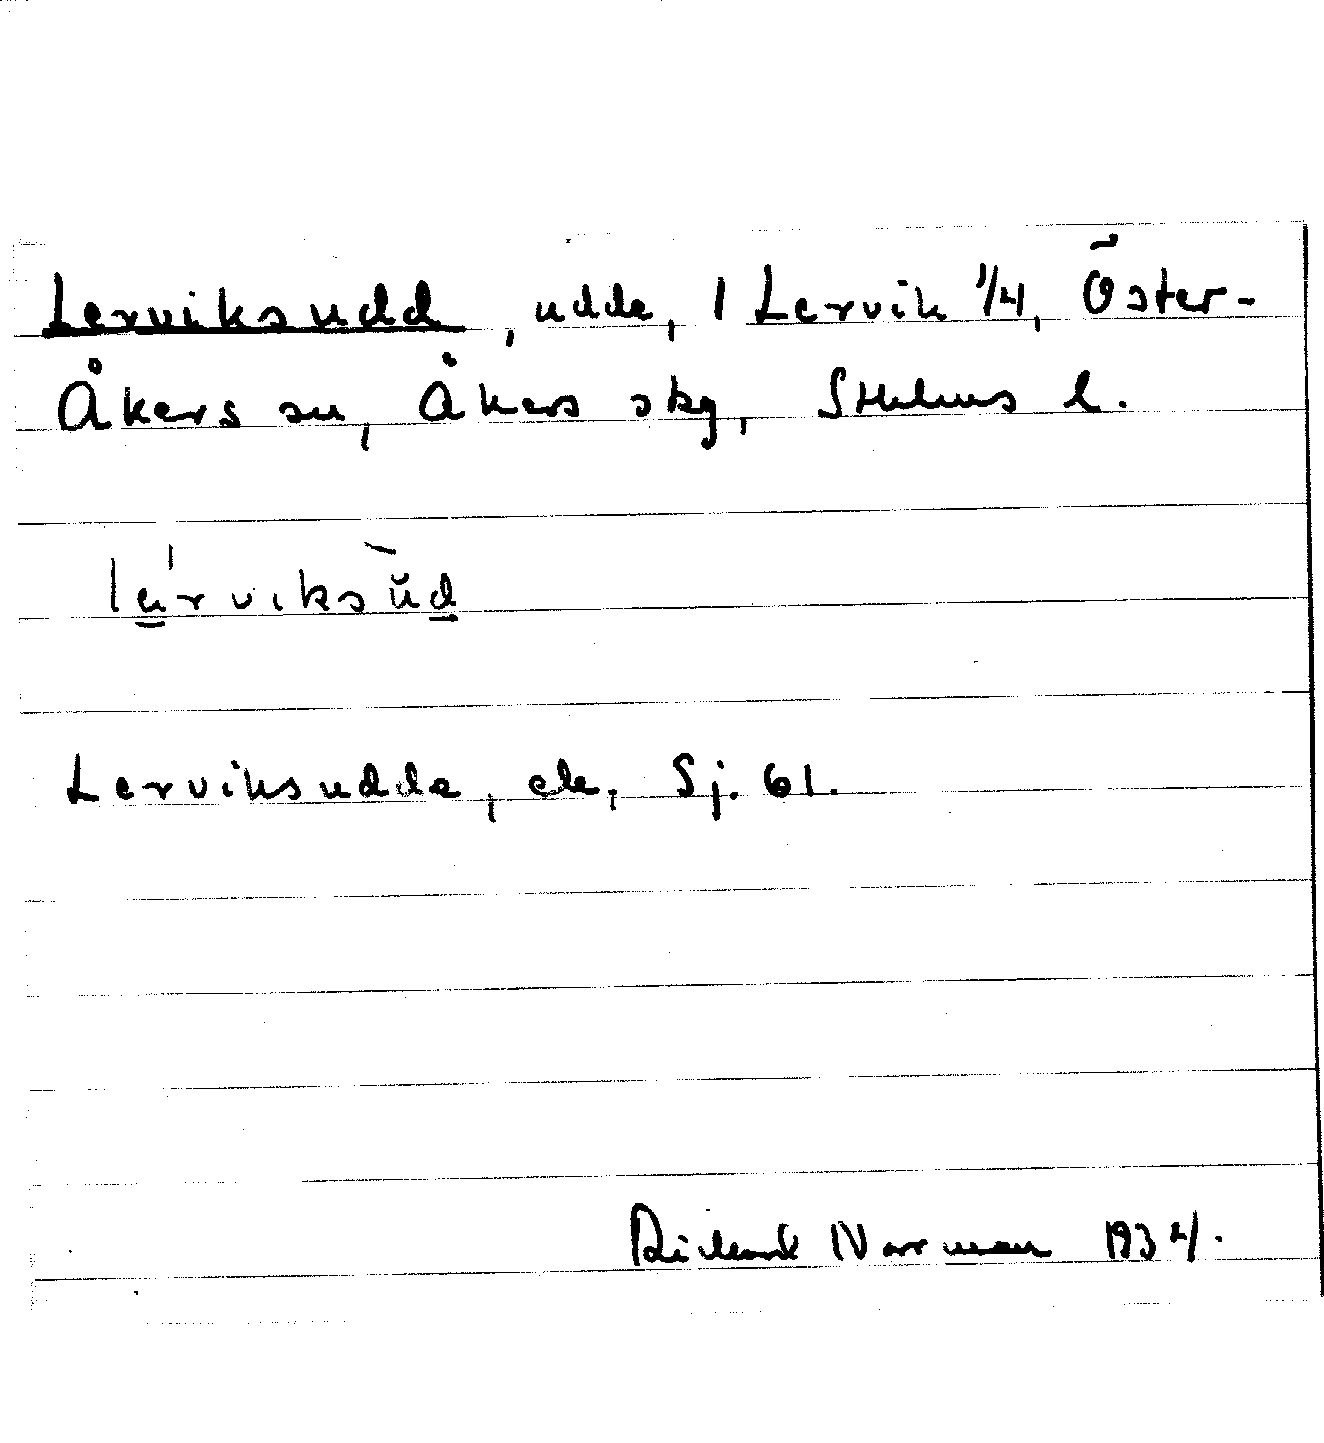 Lerviksudd, udde, 1 Lervik 1/4, Öster-
Åkers sn, Åkers skg, Sthlms l.
Lerviksudde, ek. Sj. 61.
Rickard Norrman 1934.